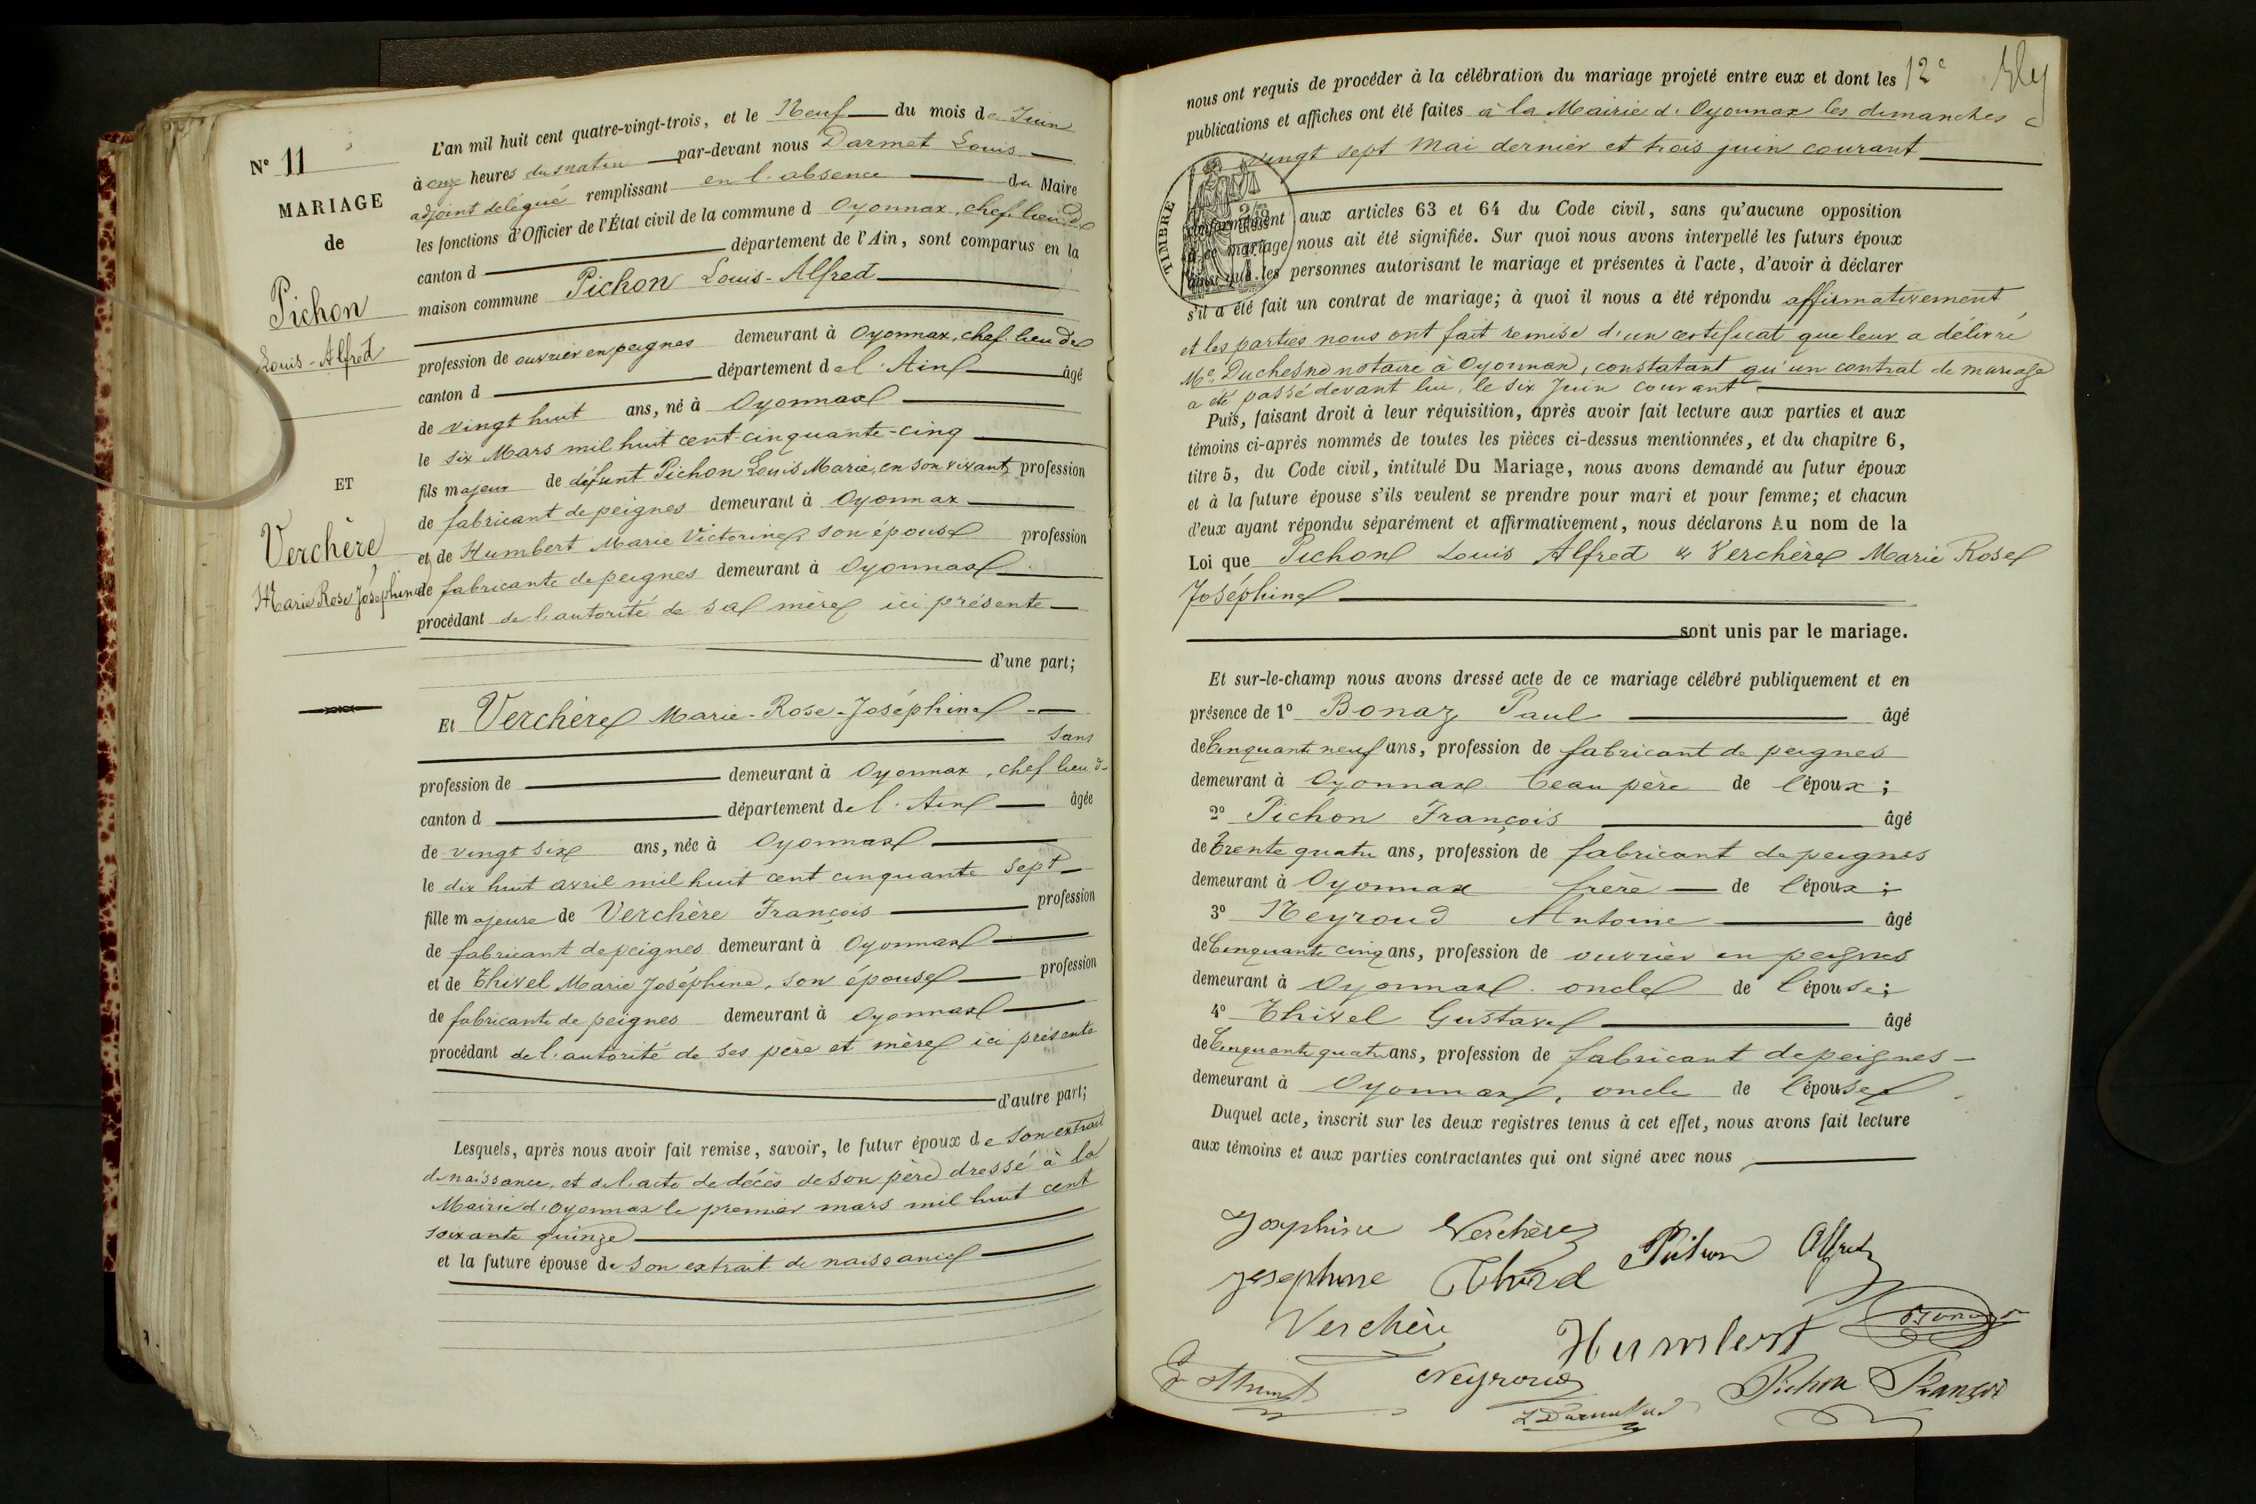 N° 11
MARIAGE
de
Pichon
Louis-Alfred
ET
Verchère
Marie Rose Joséphine
L'an mil huit cent quatre-vingt-trois, et le Neuf du mois de Juin
à onze heures du matin par-devant nous Darmet Louis
adjoint délégué remplissant en l'absence du Maire
les fonctions d'Officier de l'État civil de la commune d Oyonnax, chef lieu de
canton d département de l'Ain, sont comparus en la
maison commune Pichon Louis-Alfred
profession de ouvrier en peignes demeurant à Oyonnax, chef lieu de
canton d département de l'Ain âgé
de vingt huit ans, né à Oyonnax
le six Mars mil huit cent cinquante-cinq
fils majeur de défunt Pichon Louis Marie, en son vivant profession
de fabricant de peignes demeurant à Oyonnax
et de Humbert Marie Victorine, son épouse profession
de fabricante de peignes demeurant à Oyonnax
procédant de l'autorité de sa mère ici présente
d'une part;
Et Verchère Marie-Rose-Joséphine
sans
profession de demeurant à Oyonnax, chef lieu de
canton d département de l'Ain âgée
de vingt six ans, née à Oyonnax
le dix huit avril mil huit cent cinquante sept
fille majeure de Verchère François profession
de fabricant de peignes demeurant à Oyonnax
et de Thivel Marie Joséphine, son épouse profession
de fabricante de peignes demeurant à Oyonnax
procédant de l'autorité de ses père et mère ici présente
d'autre part;
Lesquels, après nous avoir fait remise, savoir, le futur époux de son extrait
de naissance, et de l'acte de décès de son père dressé à la
Mairie d'Oyonnax le premier mars mil huit cent
soixante quinze
et la future épouse de son extrait de naissance
12e
nous ont requis de procéder à la célébration du mariage projeté entre eux et dont les
publications et affiches ont été faites à la Mairie d'Oyonnax les dimanches
vingt sept Mai dernier et trois juin courant
TIMBRE
conformément aux articles 63 et 64 du Code civil, sans qu'aucune opposition
à ce mariage nous ait été signifiée. Sur quoi nous avons interpellé les futurs époux
ainsi que les personnes autorisant le mariage et présentes à l'acte, d'avoir à déclarer
s'il a été fait un contrat de mariage; à quoi il nous a été répondu affirmativement
et les parties nous ont fait remise d'un certificat que leur a délivré
Me Duchesne notaire à Oyonnax, constatant qu'un contrat de mariage
a été passé devant lui, le six Juin courant
Puis, faisant droit à leur réquisition, après avoir fait lecture aux parties et aux
témoins ci-après nommés de toutes les pièces ci-dessus mentionnées, et du chapitre 6,
titre 5, du Code civil, intitulé Du Mariage, nous avons demandé au futur époux
et à la future épouse s'ils veulent se prendre pour mari et pour femme; et chacun
d'eux ayant répondu séparément et affirmativement, nous déclarons Au nom de la
Loi que Pichon Louis Alfred & Verchère Marie Rose
Joséphine
sont unis par le mariage.
Et sur-le-champ nous avons dressé acte de ce mariage célébré publiquement et en
présence de 1° Bonaz Paul âgé
de Cinquante neuf ans, profession de fabricant de peignes
demeurant à Oyonnax beau père de l'époux;
2° Pichon François âgé
de Trente quatre ans, profession de fabricant de peignes
demeurant à Oyonnax frère de l'époux;
3° Neyroud Antoine âgé
de Cinquante cinq ans, profession de ouvrier en peignes
demeurant à Oyonnax oncle de l'épouse;
4° Thivel Gustave âgé
de Cinquante quatre ans, profession de fabricant de peignes
demeurant à Oyonnax, oncle de l'épouse
Duquel acte, inscrit sur les deux registres tenus à cet effet, nous avons fait lecture
aux témoins et aux parties contractantes qui ont signé avec nous
Josephine Verchère
Pichon Alfred
Josephine Thivel
Verchère
Humbert
Neyroud
Pichon François